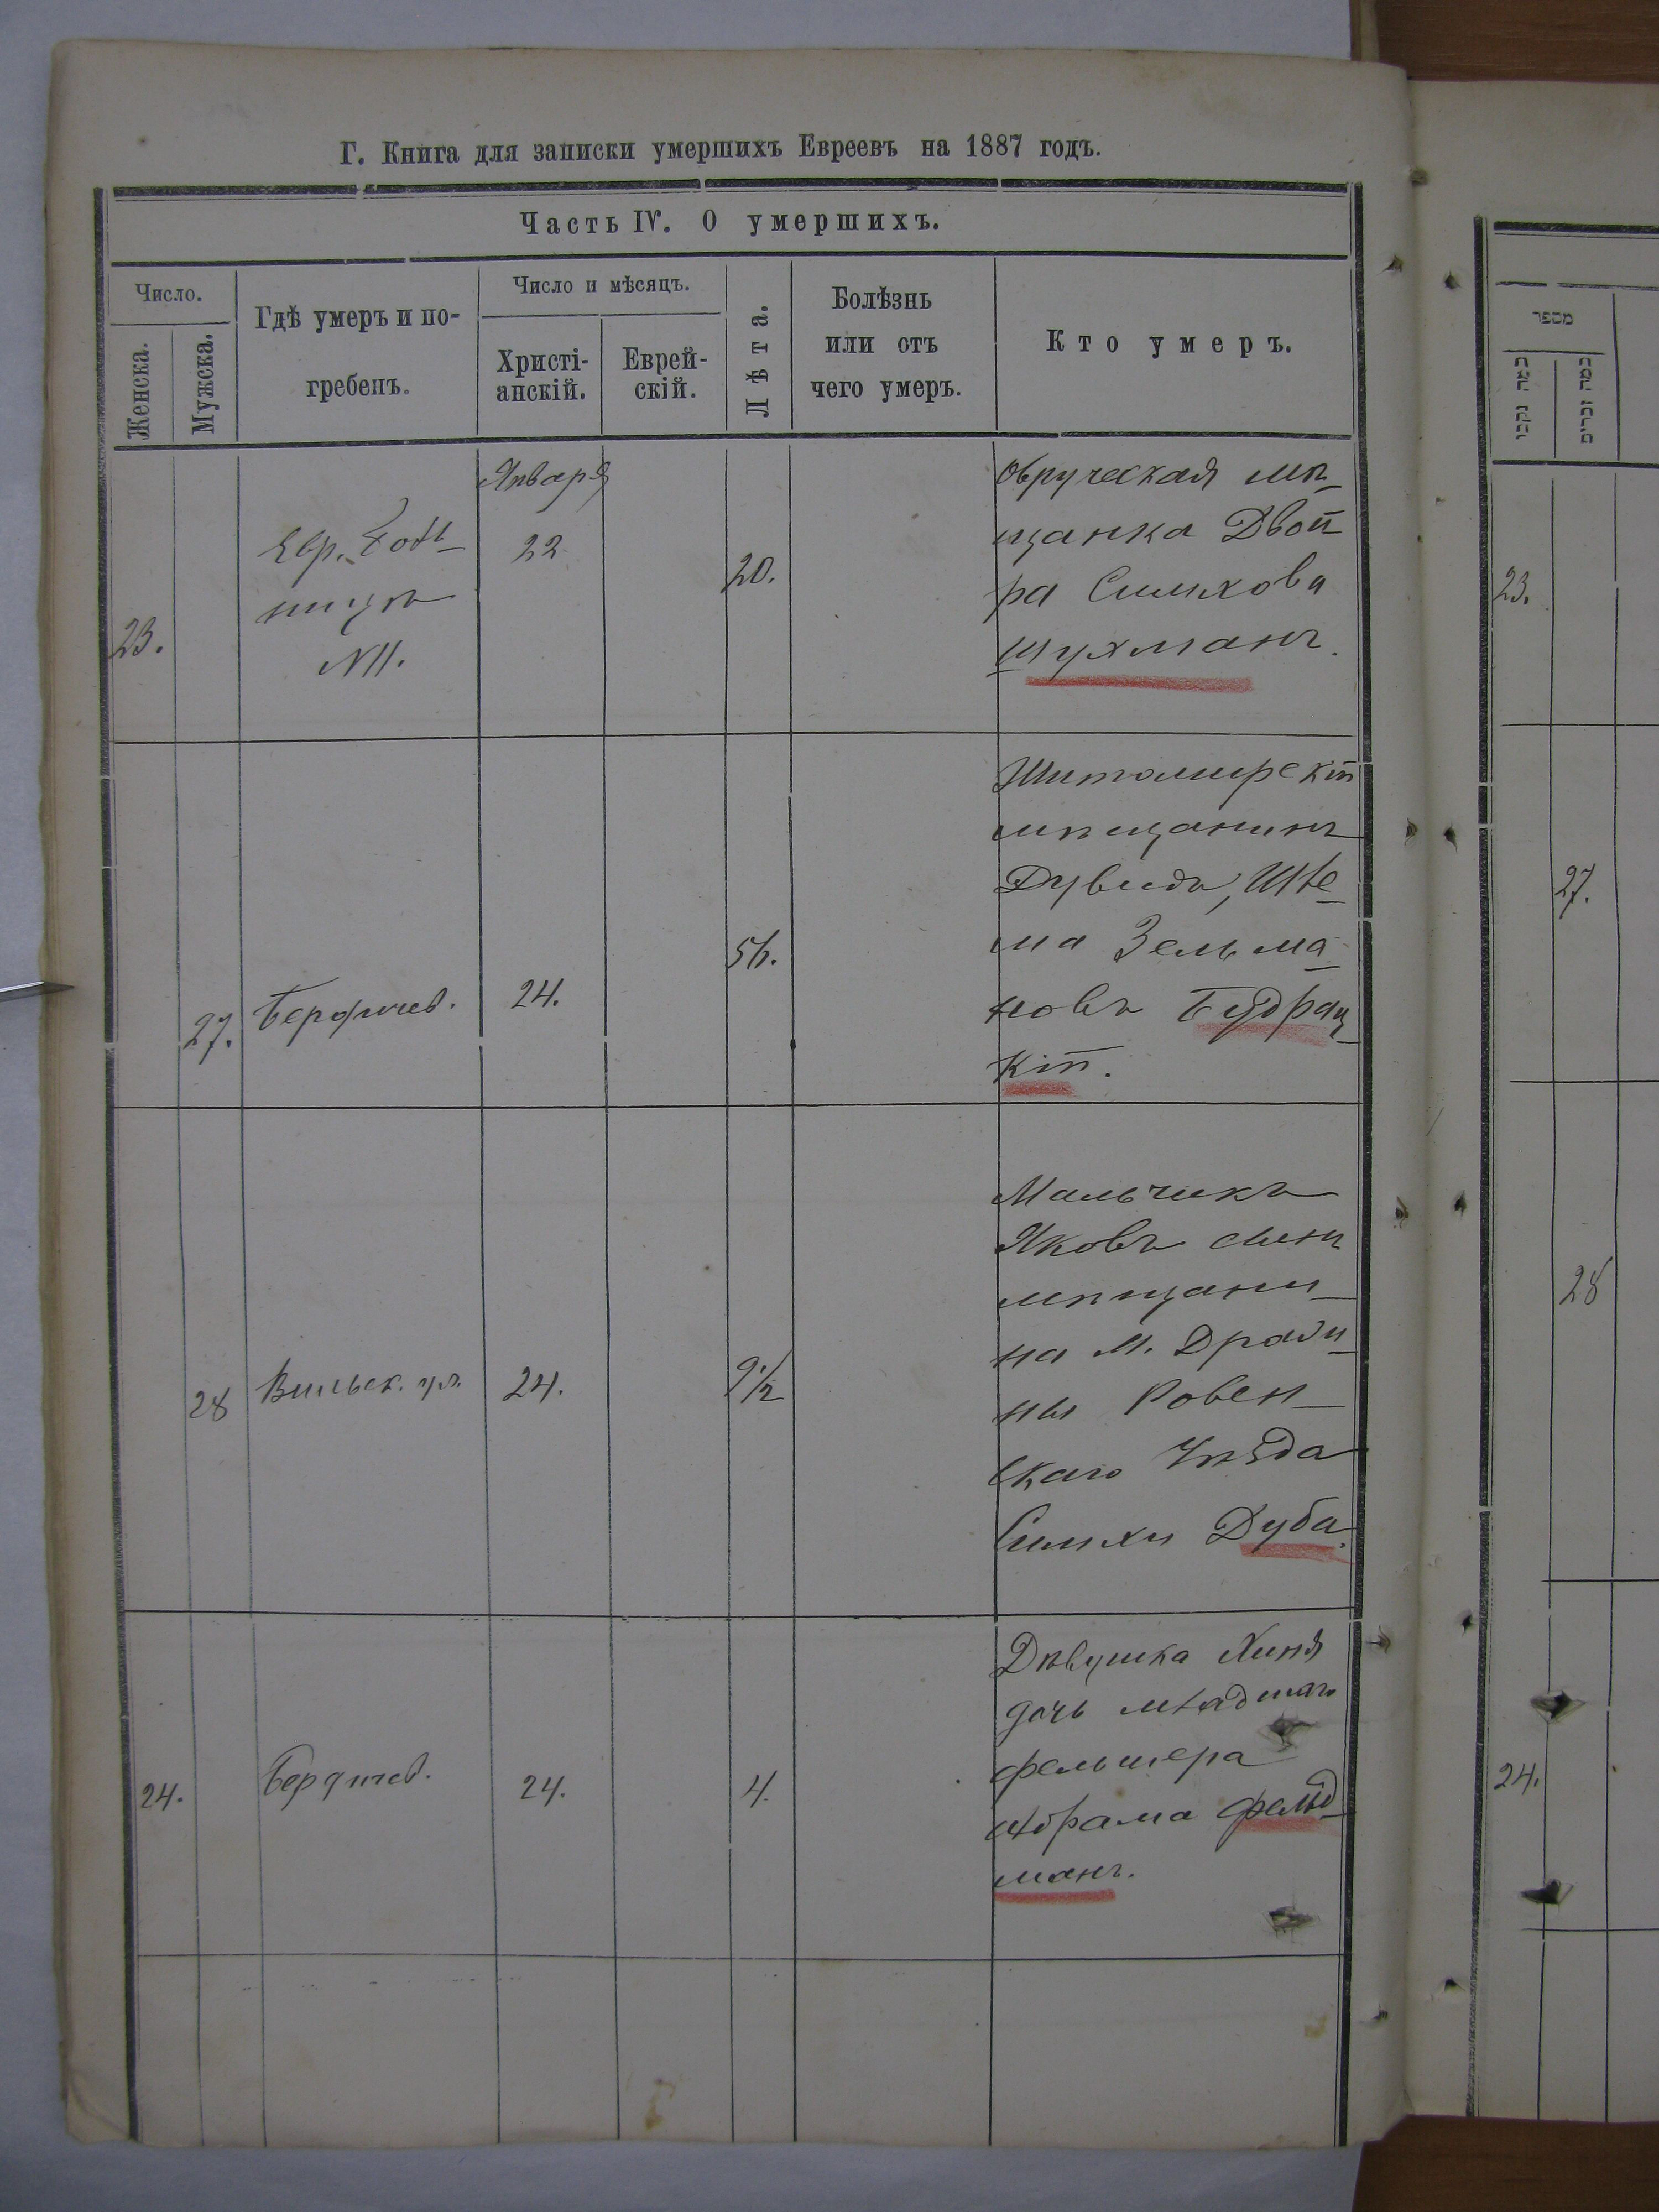 Г. Книга для записки умершихъ Евреевъ на 1887 годъ.
Часть IV. О умершихъ.
Число.
Женска.
Мужска.
Гдѣ умеръ и по-
гребенъ.
Число и мѣсяцъ.
Христі-
анскій.
Еврей-
скій.
Лѣта.
Болѣзнь
или отъ
чего умеръ.
Кто умеръ.
23.
Евр. Боль-
ница
N11.
Января
22
20.
Овручская мѣ-
щанка Двой-
ра Симхова
Шухманъ.
27.
Бердичев.
24.
56.
Житомирскій
мѣщанинъ
Дувидъ, Шле-
ма Зельма-
новъ Будрац-
кій.
28
Вильск. ул.
24.
9 1/2
Мальчикъ
Яковъ сынъ
мѣщани-
на М.
Ровен-
скаго Уѣзда
Симхи Дуба.
24.
Бердичев.
24.
4.
Дѣвушка Хиня
дочь младшаго
фельшера
Абрама Фельд-
манъ.
מספר
כמה נקבו
כמה זכרים
23.
27.
28
24.